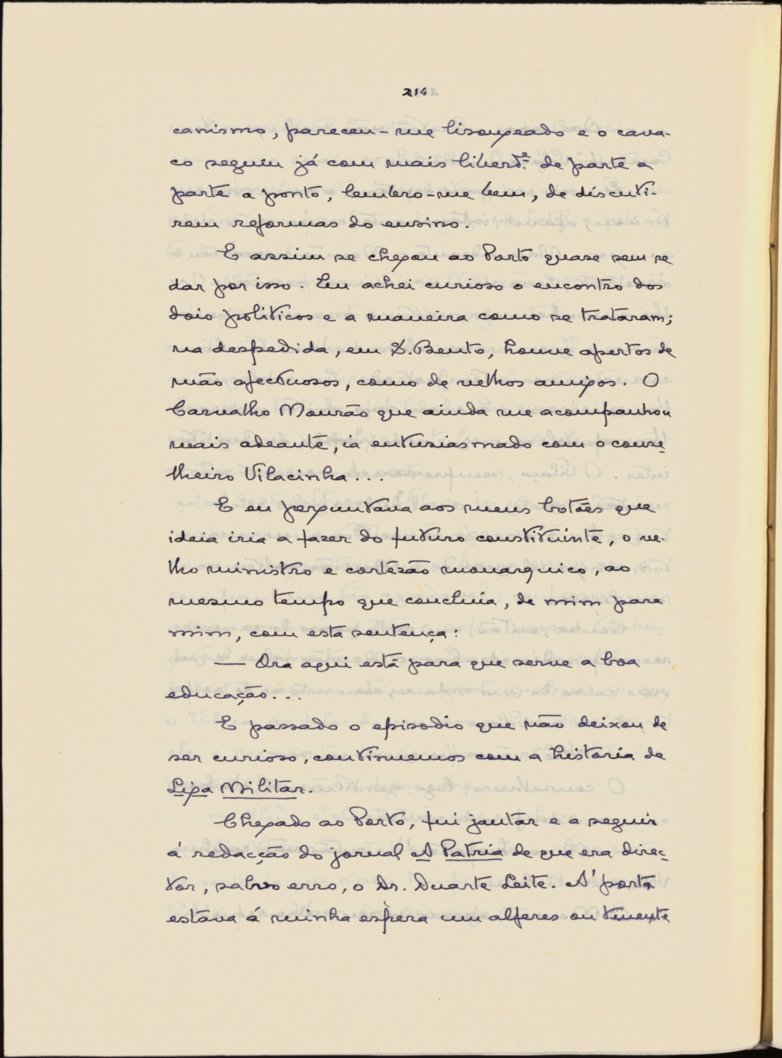 214
canismo, pareceu-me lisongeado e o cava-
co seguiu já com mais liberd.e de parte a
parte a ponto, lembro-me bem, de discuti-
rem reformas do ensino.
E assim se chegou ao Porto quase sem se
dar por isso. Eu achei curioso o encontro dos
dois politicos e a maneira como se trataram;
na despedida, em S. Bento, houve apertos de
mão afectuosos, como de velhos amigos. O
Carvalho Mourão que ainda me acompanhou
mais adeante, ia entusiasmado com o conse-
lheiro Vilacinha...
E eu perguntava aos meus botões que
ideia iria a fazer do futuro constituinte, o ve-
lho ministro e cortezão monarquico, ao
mesmo tempo que concluia, de mim para
mim, com esta sentença:
— Ora aqui está para que serve a boa
educação...
E passado o episodio que não deixou de
ser curioso, continuemos com a historia da
Liga Militar.
Chegado ao Porto, fui jantar e a seguir
á redacção do jornal A Patria de que era direc-
tor, salvo erro, o Dr. Duarte Leite. A' porta
estava á minha espera um alferes ou tenente